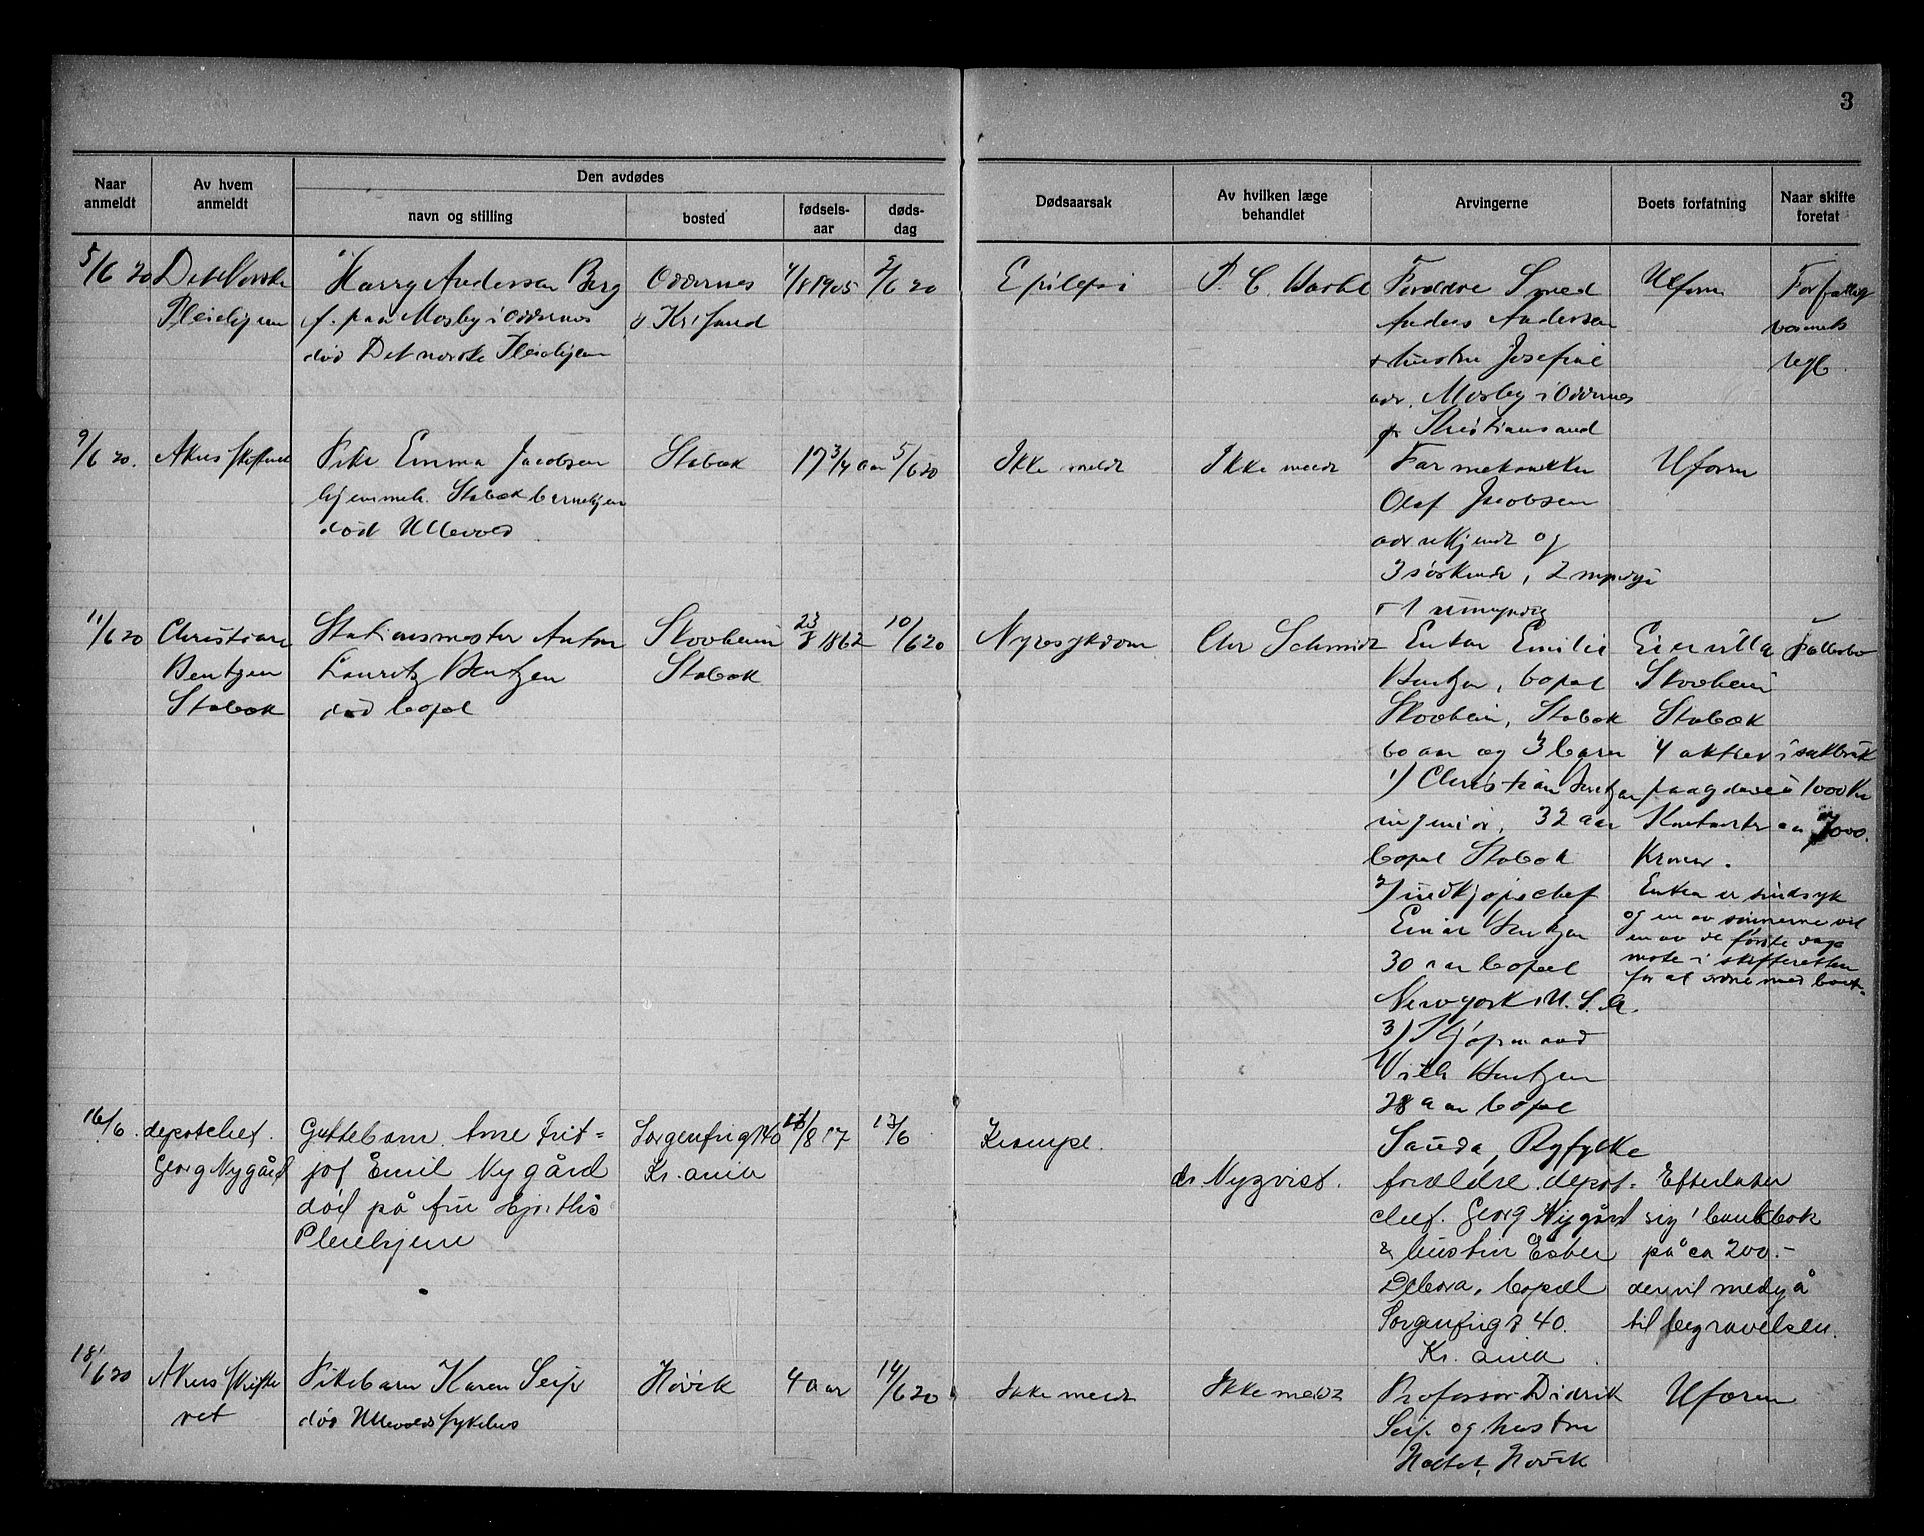 3
Naar anmeldt
Av hvem anmeldt
Den avdødes
navn og stilling
bosted
fødselsaar
dødsdag
Dødsaarsak
Av hvilken læge behandlet
Arvingerne
Boets forfatning
Naar skifte foretat
5/6 20
Det Norske
Pleiehjem
Harry Andersen Berg
f. paa Mosby i Oddernes
død Det norske Pleiehjem
Oddernes
Kr. sand
1905
2/6 20
Epilepsi
P. C.
Forældre Smed
Anders Andersen
+ hustru Josefine
adr. Mosby i Oddernes
pr Kristiansand
Uform
9/6 20.
Akers skifteret
Pike Emma Jacobsen
hjemmeh. Stabæk barnehjem
død Ullevold
Stabæk
17 3/4 aar
5/6 20
Ikke meldt
Ikke meldt
Far mekaniker
Olaf Jacobsen
adr. ukjendt og
3 søskende, 2 myndige
+ 1 umyndig
Uform
11/6 20
Christian
Bentzen
Stabæk
Stationsmester Anton
Lauritz Bentzen
død bopæl
Skovheim
Stabæk
23/8 1862
10/6 20
Nyresykdom
Chr Schmidt
Enken Emilie
Bentzen, bopæl
Skovheim, Stabæk
60 aar og 3 barn
1) Christian Bentzen
ingeniør, 32 aar
bopæl Stabæk
2) indkjøpschef
Einar Bentzen
30 aar bopæl
New york U. S. A.
3) Kjøpmand
Vilh Bentzen
28 aar bopæl
Sauda, Ryfylke
Eier villa
Skovheim
Stabæk
4 aktier i
1000 Kr
Kroner.
Enken er sindsyk
og en av sønnerne vil
en av de første dage
møte i skifteretten
for at ordne med boet.
16/6.
depotchef.
Georg Nygård
Guttebarn. Arne Frit=
jof Emil Nygård
død på fru Hjorths
Pleiehjem
Sorgenfrigt 40
Kr. ania
/8 17
13/6
Krampe.
dr. Nyqvist.
forældre depot-
chef. Georg Nygård
& hustru Ester
Debora, bopæl
Sorgenfrigt 40.
Kr. ania.
Efterlater
sig 1 bankbok
på ca 200.-
der vil medgå
til begravelsen.
18/6 20
Akers skifte
ret
Pikebarn Karen Seip
død Ullevolds sykehus
Høvik
4 aar
14/6 20
Ikke meldt
Ikke meldt
Professor Didrik
Seip og hustru
Høvik
Uform